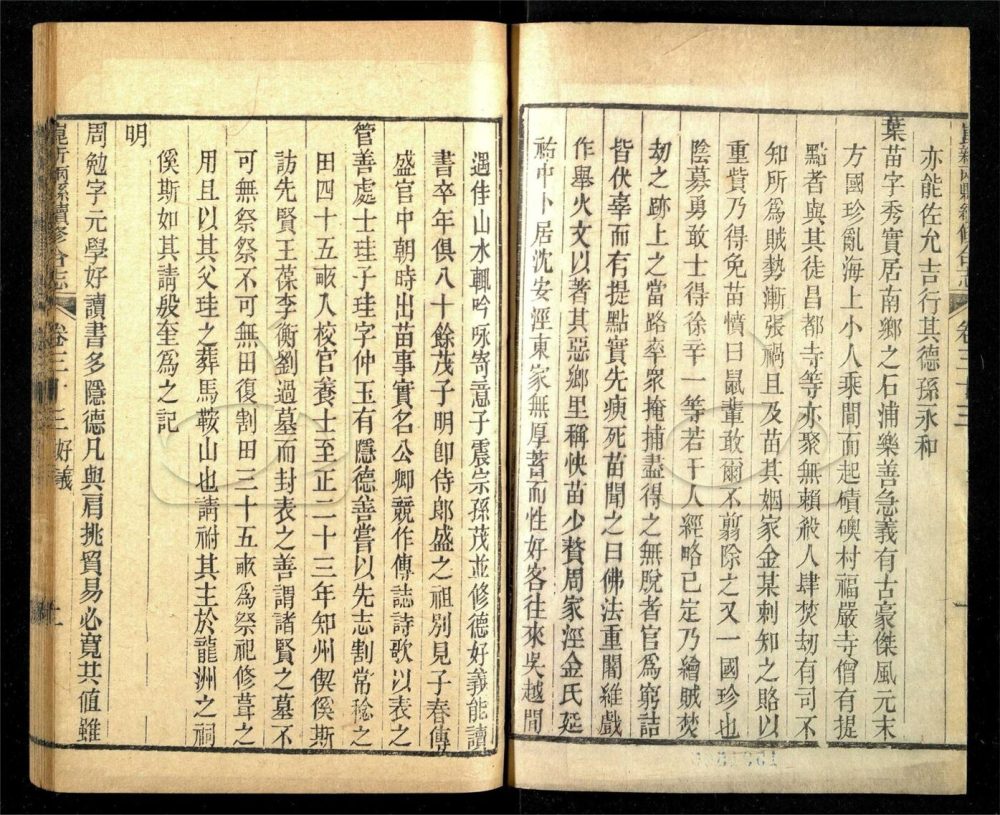 亦能佐允吉行其德孫永和
葉苗字秀實居南鄉之石浦樂善急義有古豪傑風元末
方國珍亂海上小人乘間而起磧磜村福嚴寺僧有提
點者與其徒昌都寺等亦聚無賴殺人肆焚刼有司不
知所爲賊勢漸張禍且及苗其姻家金某刺知之賂以
重貲乃得免苗憤曰鼠輩敢爾不翦除之又一國珍也
陰募勇敢士得徐辛一等若干人經略已定乃繪賊焚
刼之跡上之當路率眾掩捕盡得之無脫者官爲窮詰
皆伏辜而有提點實先瘐死苗聞之曰佛法重闍維戲
作舉火文以著其惡鄉里稱快苗少贅周家涇金氏延
祐中卜居沈安涇東家無厚蓄而性好客往來吳越間
遇佳山水輒吟咏寄意子震宗孫茂並修德好義能讀
書卒年俱八十餘茂子明卽侍郎盛之祖別見子春傳
盛官中朝時出苗事實名公卿競作傳誌詩歌以表之
管善處士珪子珪字仲玉有隱德善嘗以先志割常稔之
田四十五畝入校官養士至正二十三年知州偰傒斯
訪先賢王葆李衡劉過墓而封表之善謂諸賢之墓不
可無祭祭不可無田復割田三十五畝爲祭祀修葺之
用且以其父珪之葬馬鞍山也請祔其主於龍洲之祠
傒斯如其請殷奎爲之記
明
周勉字元學好讀書多隱德凡與肩挑貿易必寬其值雖
崑新兩縣續修合志 卷三十三 好義